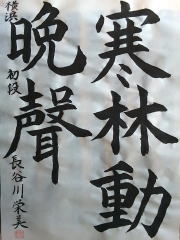 寒林動
晩聲
横浜 初段 長谷川栄美